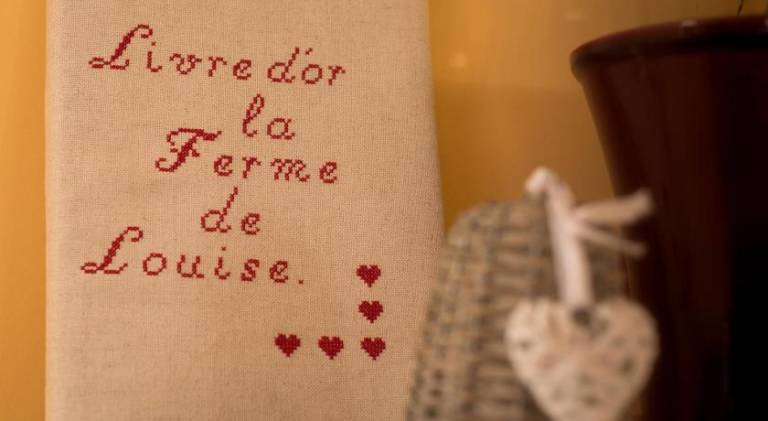 Livre d'or
la
Ferme
de
Louise.